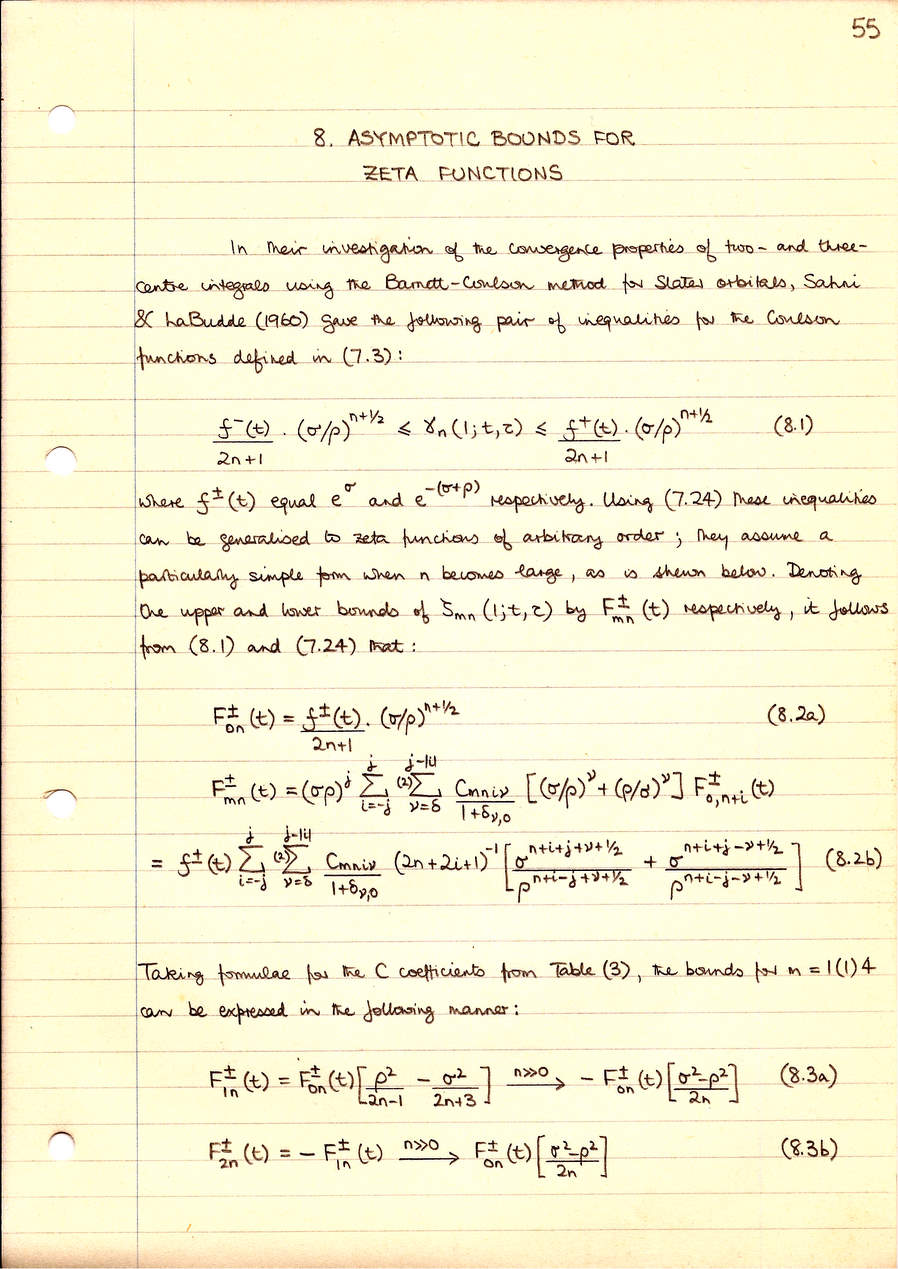 55
8. ASYMPTOTIC BOUNDS FOR
ZETA FUNCTIONS
In their investigation of the convergence properties of two- and three-
centre integrals using the Barnett-Coulson method for Slater orbitals, Sahni
& LaBudde (1960) gave the following pair of inequalities for the Coulson
functions defined in (7.3):
f⁻(t)/(2n+1) . (σ/ρ)^(n+1/2) ≤ γn(1;t,τ) ≤ f⁺(t)/(2n+1) . (σ/ρ)^(n+1/2) (8.1)
where f±(t) equal e^σ and e^-(σ+ρ) respectively. Using (7.24) these inequalities
can be generalised to zeta functions of arbitrary order; they assume a
particularly simple form when n becomes large, as is shewn below. Denoting
the upper and lower bounds of ζmn(1;t,τ) by F±mn(t) respectively, it follows
from (8.1) and (7.24) that:
F±on(t) = f±(t)/(2n+1) . (σ/ρ)^(n+1/2) (8.2a)
F±mn(t) = (σρ)^j Σ(i=-j to j) (2)Σ(ν=δ to j-|i|) Cmniν/(1+δν,0) [(σ/ρ)^ν + (ρ/σ)^ν] F±o,n+i(t)
= f±(t) Σ(i=-j to j) (2)Σ(ν=δ to j-|i|) Cmniν/(1+δν,0) (2n+2i+1)^-1 [σ^(n+i+j+ν+1/2)/ρ^(n+i-j+ν+1/2) + σ^(n+i+j-ν+1/2)/ρ^(n+i-j-ν+1/2)] (8.2b)
Taking formulae for the C coefficients from Table (3), the bounds for m = 1(1)4
can be expressed in the following manner:
F±1n(t) = F±on(t)[ρ²/(2n-1) - σ²/(2n+3)] n≫0 → - F±on(t)[(σ²-ρ²)/2n] (8.3a)
F±2n(t) = - F±1n(t) n≫0 → F±on(t)[(σ²-ρ²)/2n] (8.3b)